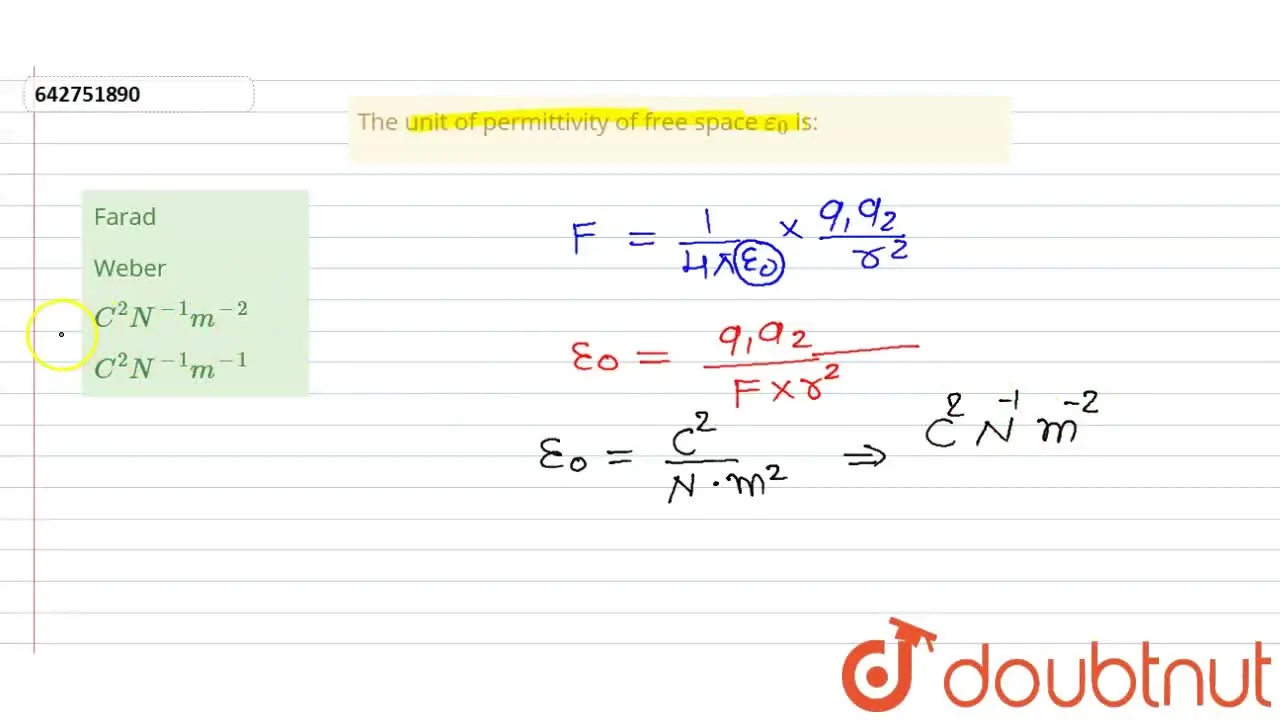 642751890
The unit of permittivity of free space ε₀ is:
Farad
Weber
C²N⁻¹m⁻²
C²N⁻¹m⁻¹
F = 1/4πε₀ × q₁q₂/r²
ε₀ = q₁q₂/F×r²
ε₀ = C²/N·m² ⇒ C² N⁻¹ m⁻²
doubtnut